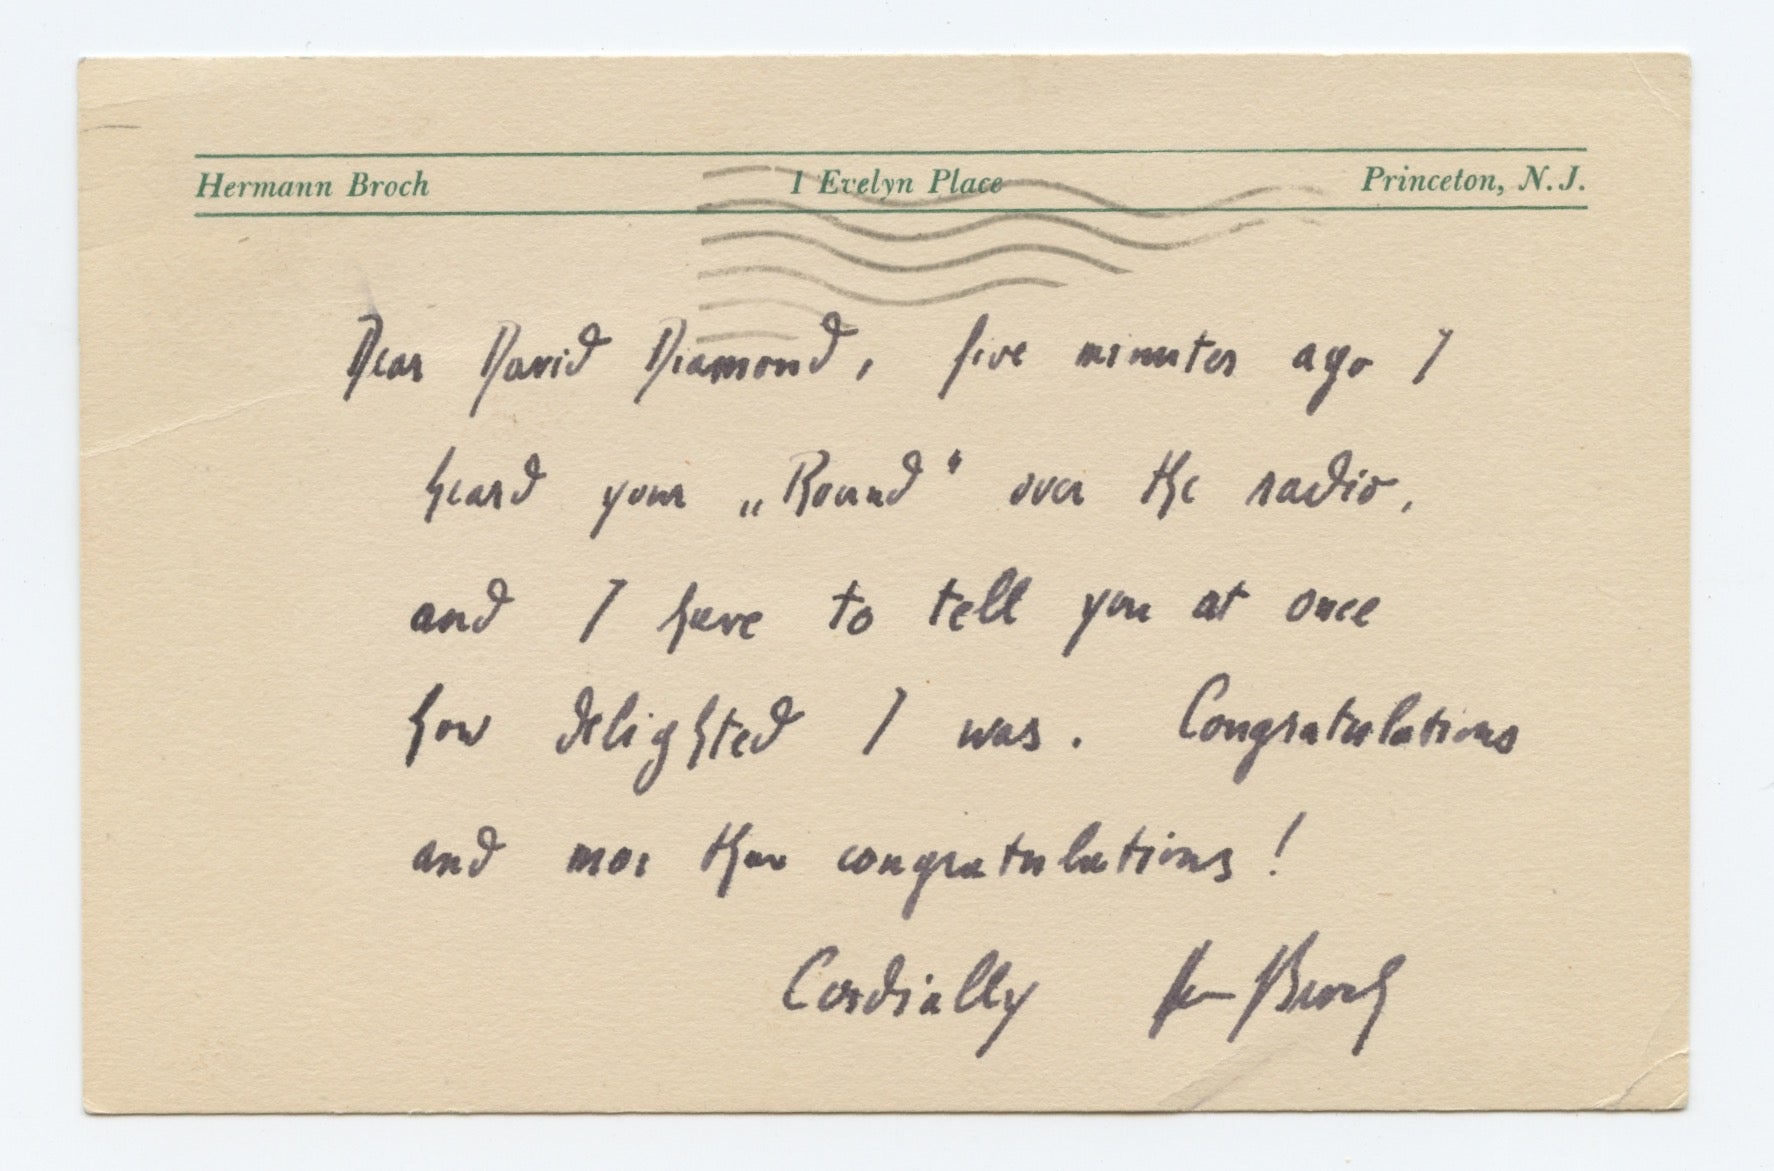 Hermann Broch 1 Evelyn Place Princeton, N. J.
Dear David Diamond, five minutes ago I
heard your „Round“ over the radio,
and I have to tell you at once
how delighted I was. Congratulations
and mor than congratulations!
Cordially Broch